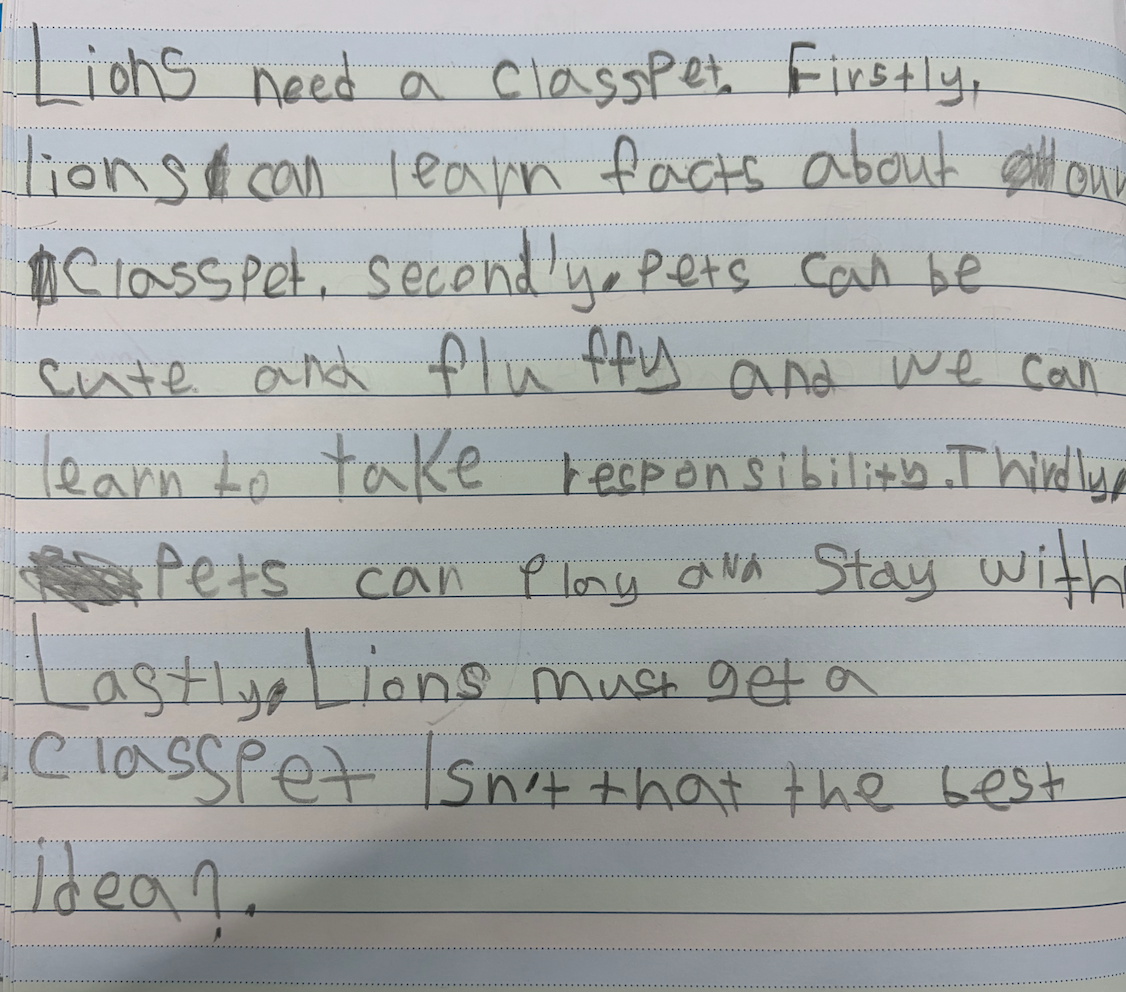 Lions need a classPet. Firstly,
lions can learn facts about our
Classpet. secondly, pets can be
cute and flu ffy and we can
learn to take responsibility. Thirdly,
Pets can Play and Stay with
Lastly, Lions must get a
classpet Isn't that the best
idea?.